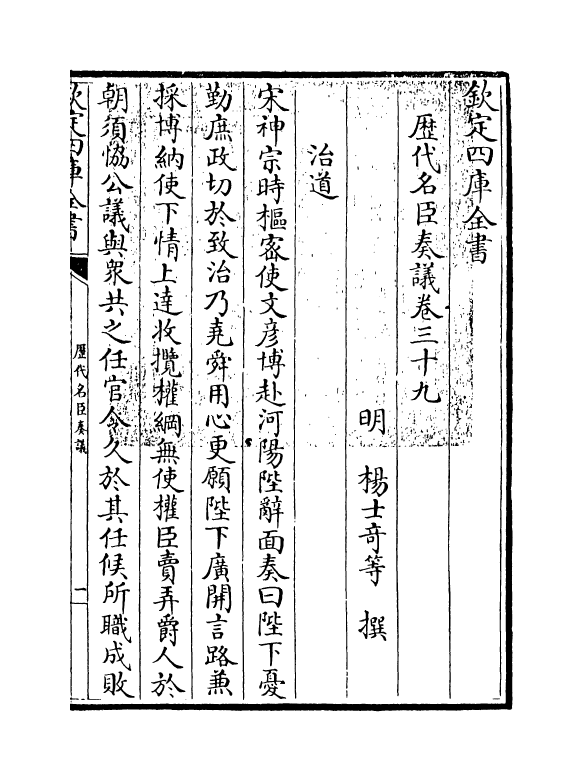 欽定四庫全書
歴代名臣奏議卷三十九
明 楊士竒等 撰
治道
宋神宗時樞宻使文彦博赴河陽陛辭面奏曰陛下憂
勤庶政切於致治乃堯舜用心更願陛下廣開言路兼
採博納使下情上達收攬權綱無使權臣賣弄爵人於
朝須恊公議與衆共之任官令久於其任候所職成敗
欽定四庫全書
歴代名臣奏議
一